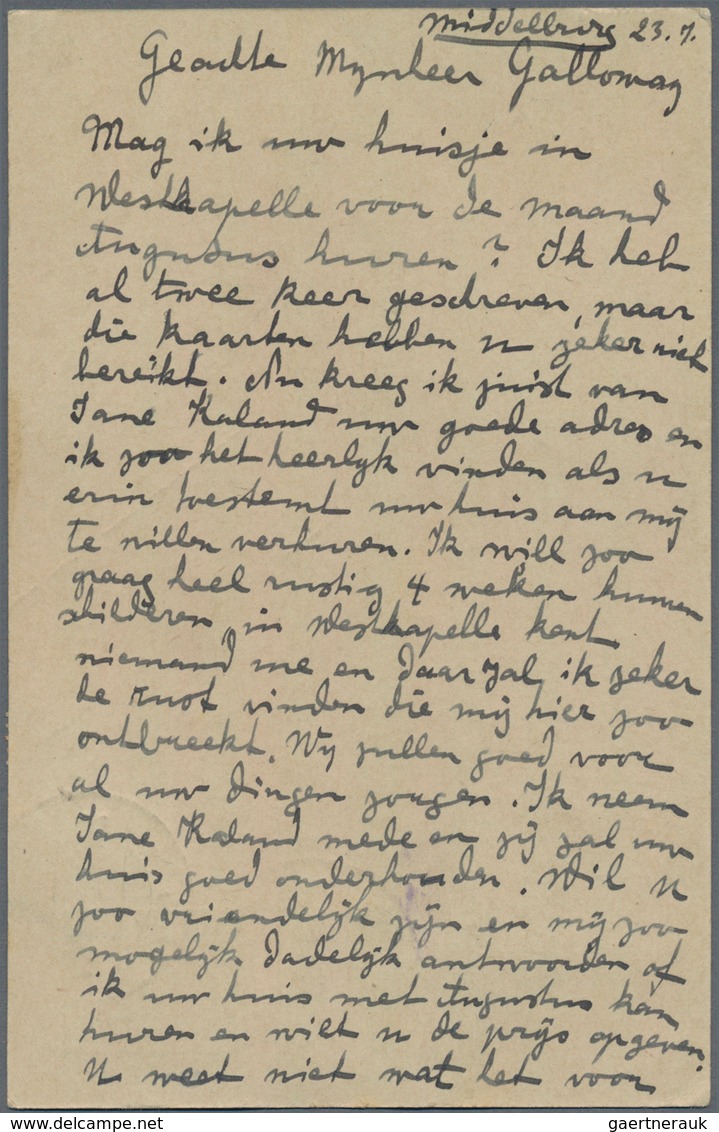 Middelburg 23.7.
Geachte Mynheer Galloway
Mag ik uw huisje in
Westkapelle voor de maand
Augustus huren? Ik heb
al twee keer geschreven, maar
die kaarten hebben u zeker niet
bereikt. Nu kreeg ik juist van
Jane Kaland uw goede adres en
ik zoo het heerlyk vinden als u
erin toestemt uw huis aan mij
te willen verhuren. Ik will zoo
graag heel rustig 4 weken kunnen
schilderen, in Westkapelle kent
niemand me en daar zal ik zeker
de rust vinden die mij hier zoo
ontbreekt. Wy zullen goed voor
al uw dingen zorgen. Ik neem
Jane Kaland mede en zij zal uw
huis goed onderhouden. Wil u
zoo vriendelijk zijn en mij zoo
mogelijk dadelijk antwoorden of
ik uw huis met Augustus kan
huren en wilt u de prijs opgeven?
U weet niet wat het voor
gaertnerauk